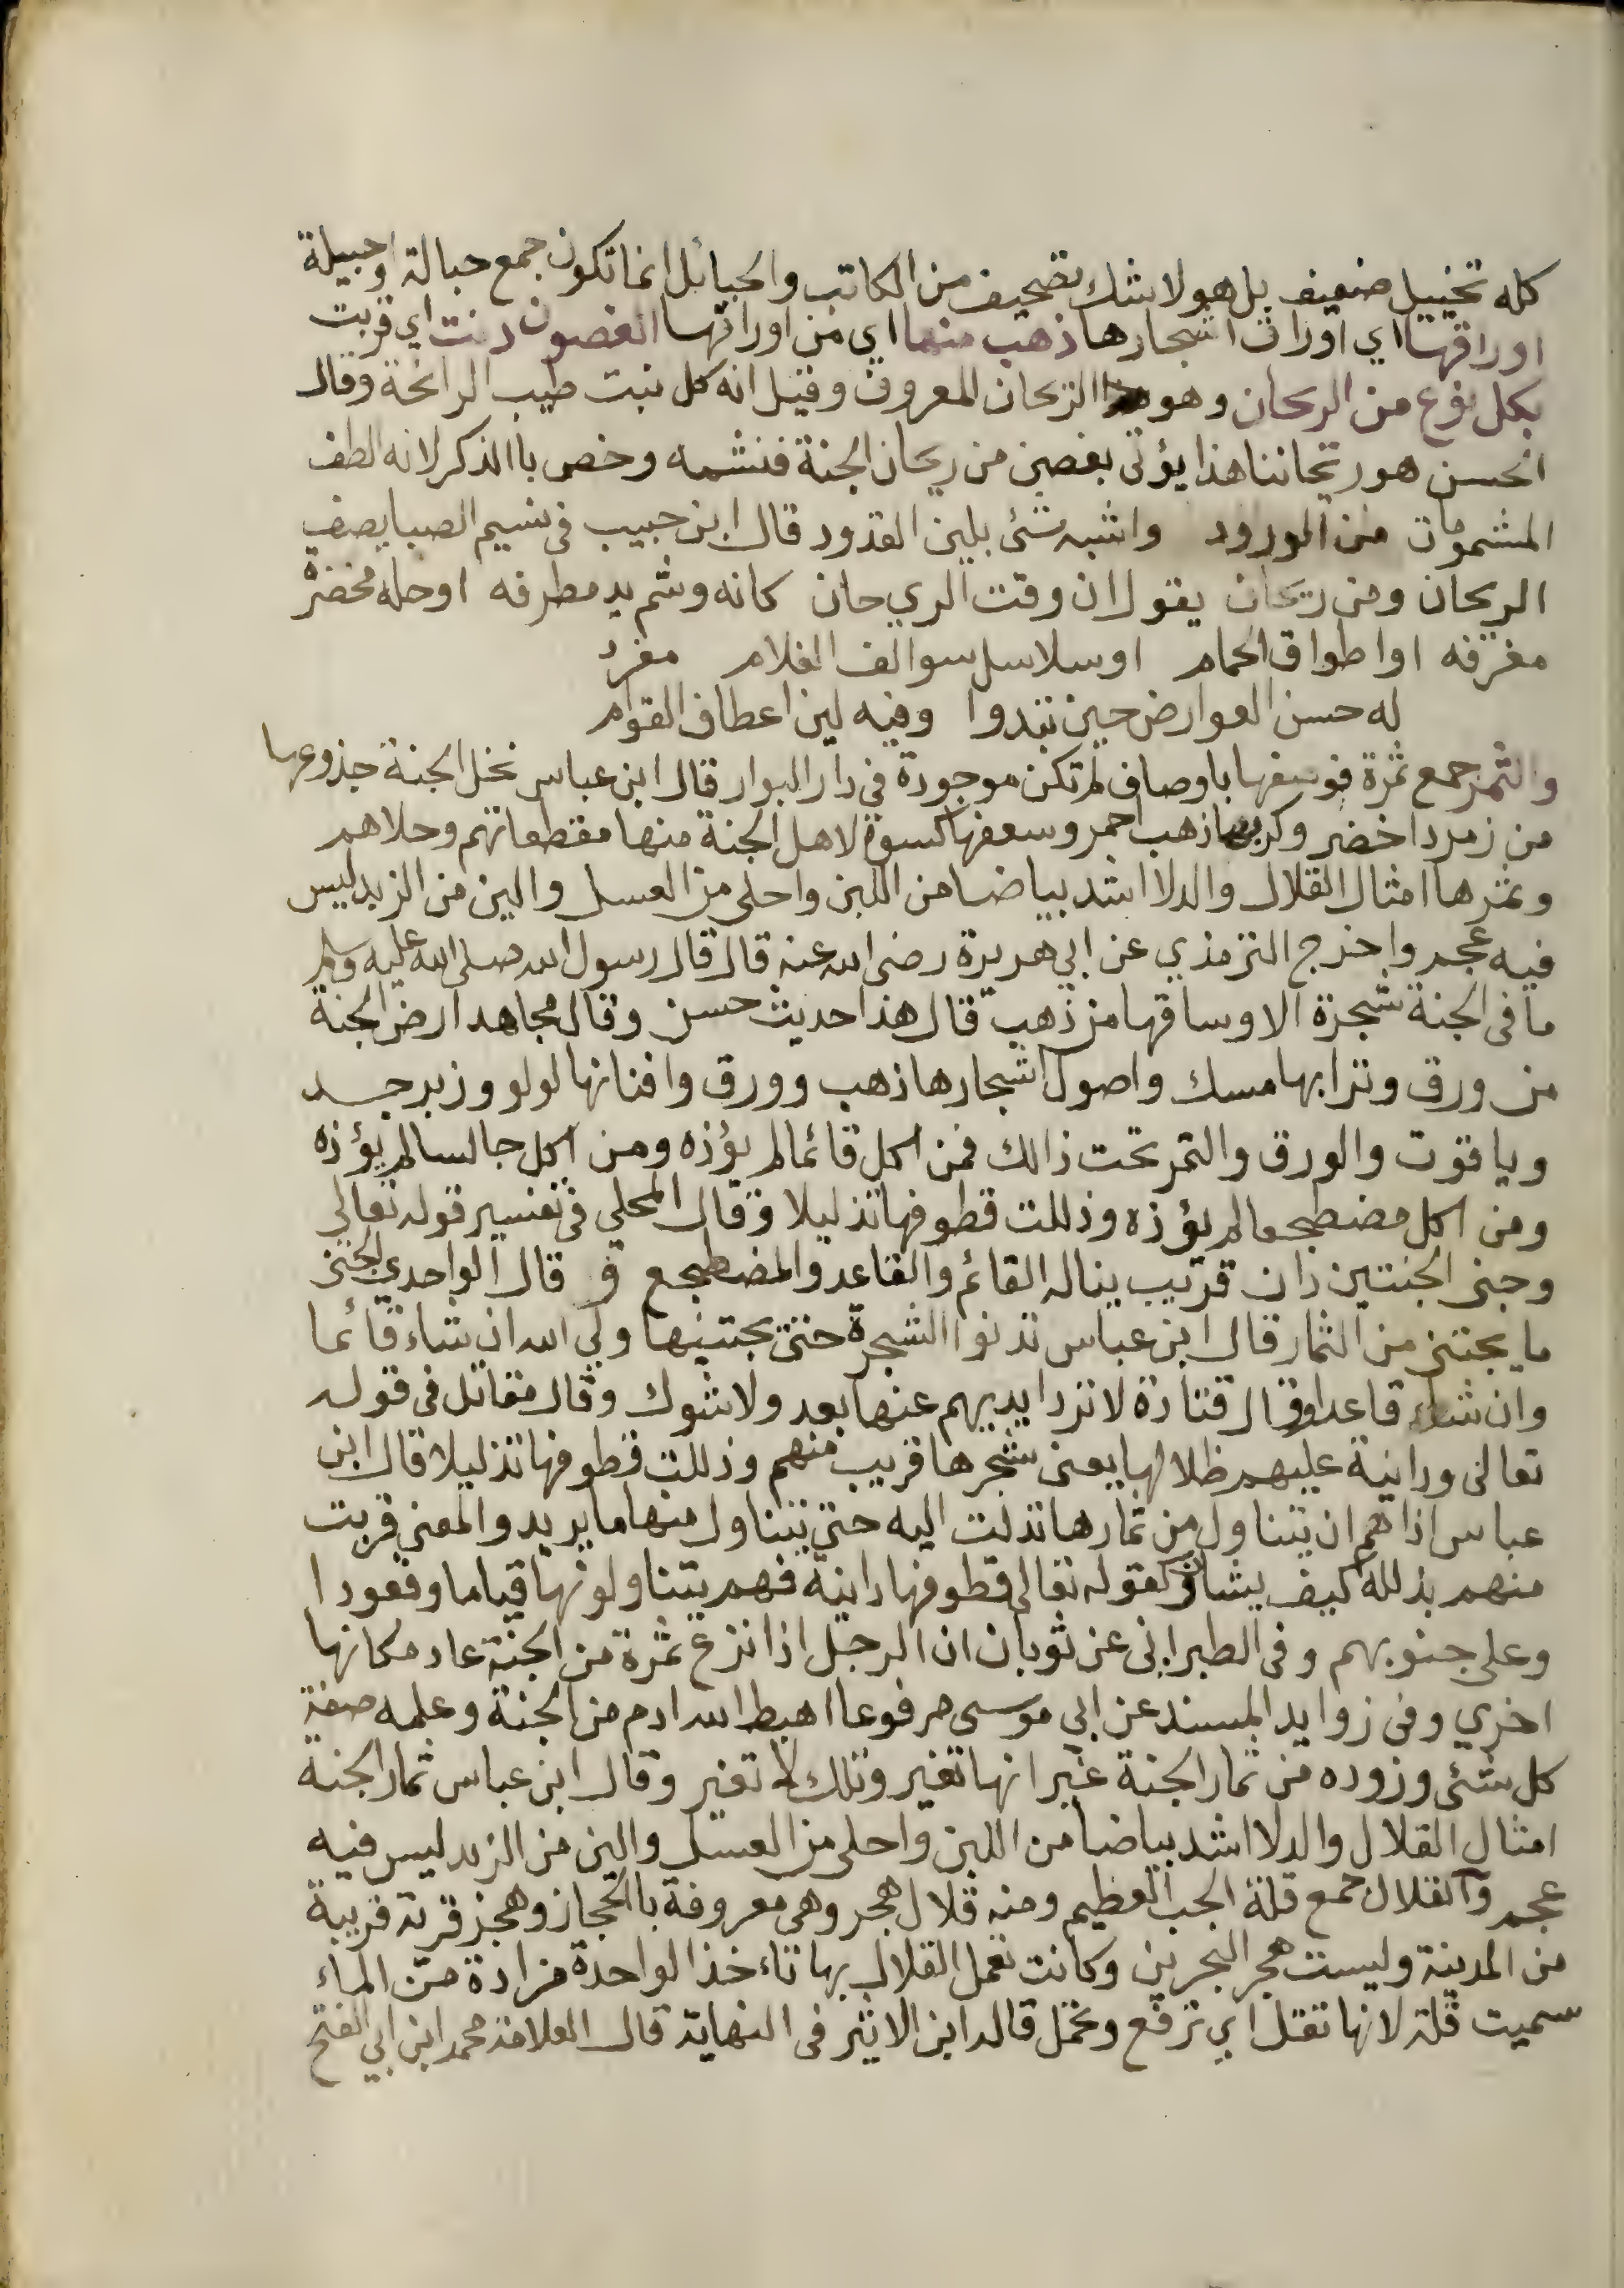 كله تخييل ضعيف بل هو لا شك تصحيف من الكاتب والحبائل انما تكون جمع حبالة او حبيلة
اوراقها اي اوراق اشجارها ذهب منها اي من اوراقها الغصون دنت اي قربت
بكل نوع من الريحان وهو الريحان المعروف وقيل انه كل نبت طيب الرائحة وقال
الحسن هو ريحاننا هذا يؤتى بغصن من ريحان الجنة فنشمه وخص باالذكر لانه الطف
المشمومات من الورود واشبه شئ بلين القدود قال ابن حبيب في نسيم الصبا يصف
الريحان ومن ريحان يقول ان وقت الري حان كانه وشم يد مطرفه او حله مخضرة
مغزفه او اطواق الحمام او سلاسل سوالف الغلام مفرد
له حسن العوارض حين تبدوا وفيه لين اعطاف القوام
والثمر جمع ثمرة فوصفها باوصاف لم تكن موجودة في دار البوار قال ابن عباس نخل الجنة جذوعها
من زمردا خضر وكربها ذهب احمر وسعفها كسوة لاهل الجنة منها مقطعاتهم وحلاهم
وثمرها امثال القلال والدلا اشد بياضا من اللبن واحلى من العسل والين من الزبد ليس
فيه عجم واخرج الترمذي عن ابي هريرة رضى الله عنه قال قال رسول الله صلى الله عليه وسلم
ما في الجنة شجرة الا وساقها من ذهب قال هذا حديث حسن وقال مجاهد ارض الجنة
من ورق وترابها مسك واصول اشجارها ذهب وورق وافنانها لولو وزبرجد
وياقوت والورق والثمر تحت ذالك فمن اكل قائما لم يؤذه ومن اكل جالسا لم يؤذه
ومن اكل مضطجعا لم يؤذه وذللت قطوفها تذليلا وقال المحلي في تفسير قوله تعالي
وجنى الجنتين دان قريب يناله القائم والقاعد والمضطجع و قال الواحدي الجنى
ما يجتنى من الثمار قال ابن عباس تدنوا الشجرة حتى يجتنيها ولي الله ان شاء قائما
وان شاء قاعدا وقال قتادة لا ترد ايديهم عنها بعد ولا شوك وقال مقاتل في قوله
تعالى ودانية عليهم ظلالها يعنى شجرها قريب منهم وذللت قطوفها تذليلا قال ابن
عباس اذا هم ان يتناول من ثمارها تدلت اليه حتى يتناول منها ما يريد والمعنى قربت
منهم بذلله كيف يشاؤن كقوله تعالى قطوفها دانية فهم يتناولونها قياما وقعودا
وعلى جنوبهم وفي الطبراني عن ثوبان ان الرجل اذا نزع ثمرة من الجنة عاد مكانها
اخري وفي زوايد المسند عن ابي موسى مرفوعا اهبط الله ادم من الجنة وعلمه صفة
كل شئى وزوده من ثمار الجنة غير انها تغير وتلك لا تغير وقال ابن عباس ثمار الجنة
امثال القلال والدلا اشد بياضا من اللبن واحلى من العسل والين من الزبد ليس فيه
عجم والقلال جمع قلة الجب العظيم ومنه قلال هجر وهى معروفة باالحجاز وهجر قرية قريبة
من المدينة وليست هجر البحرين وكانت تعمل القلال بها تاءخذ الواحدة مزادة من الماء
سميت قلة لانها تقل اي ترفع وتحمل قاله ابن الاثير في النهاية قال العلامة محمد ابن ابي الفتح